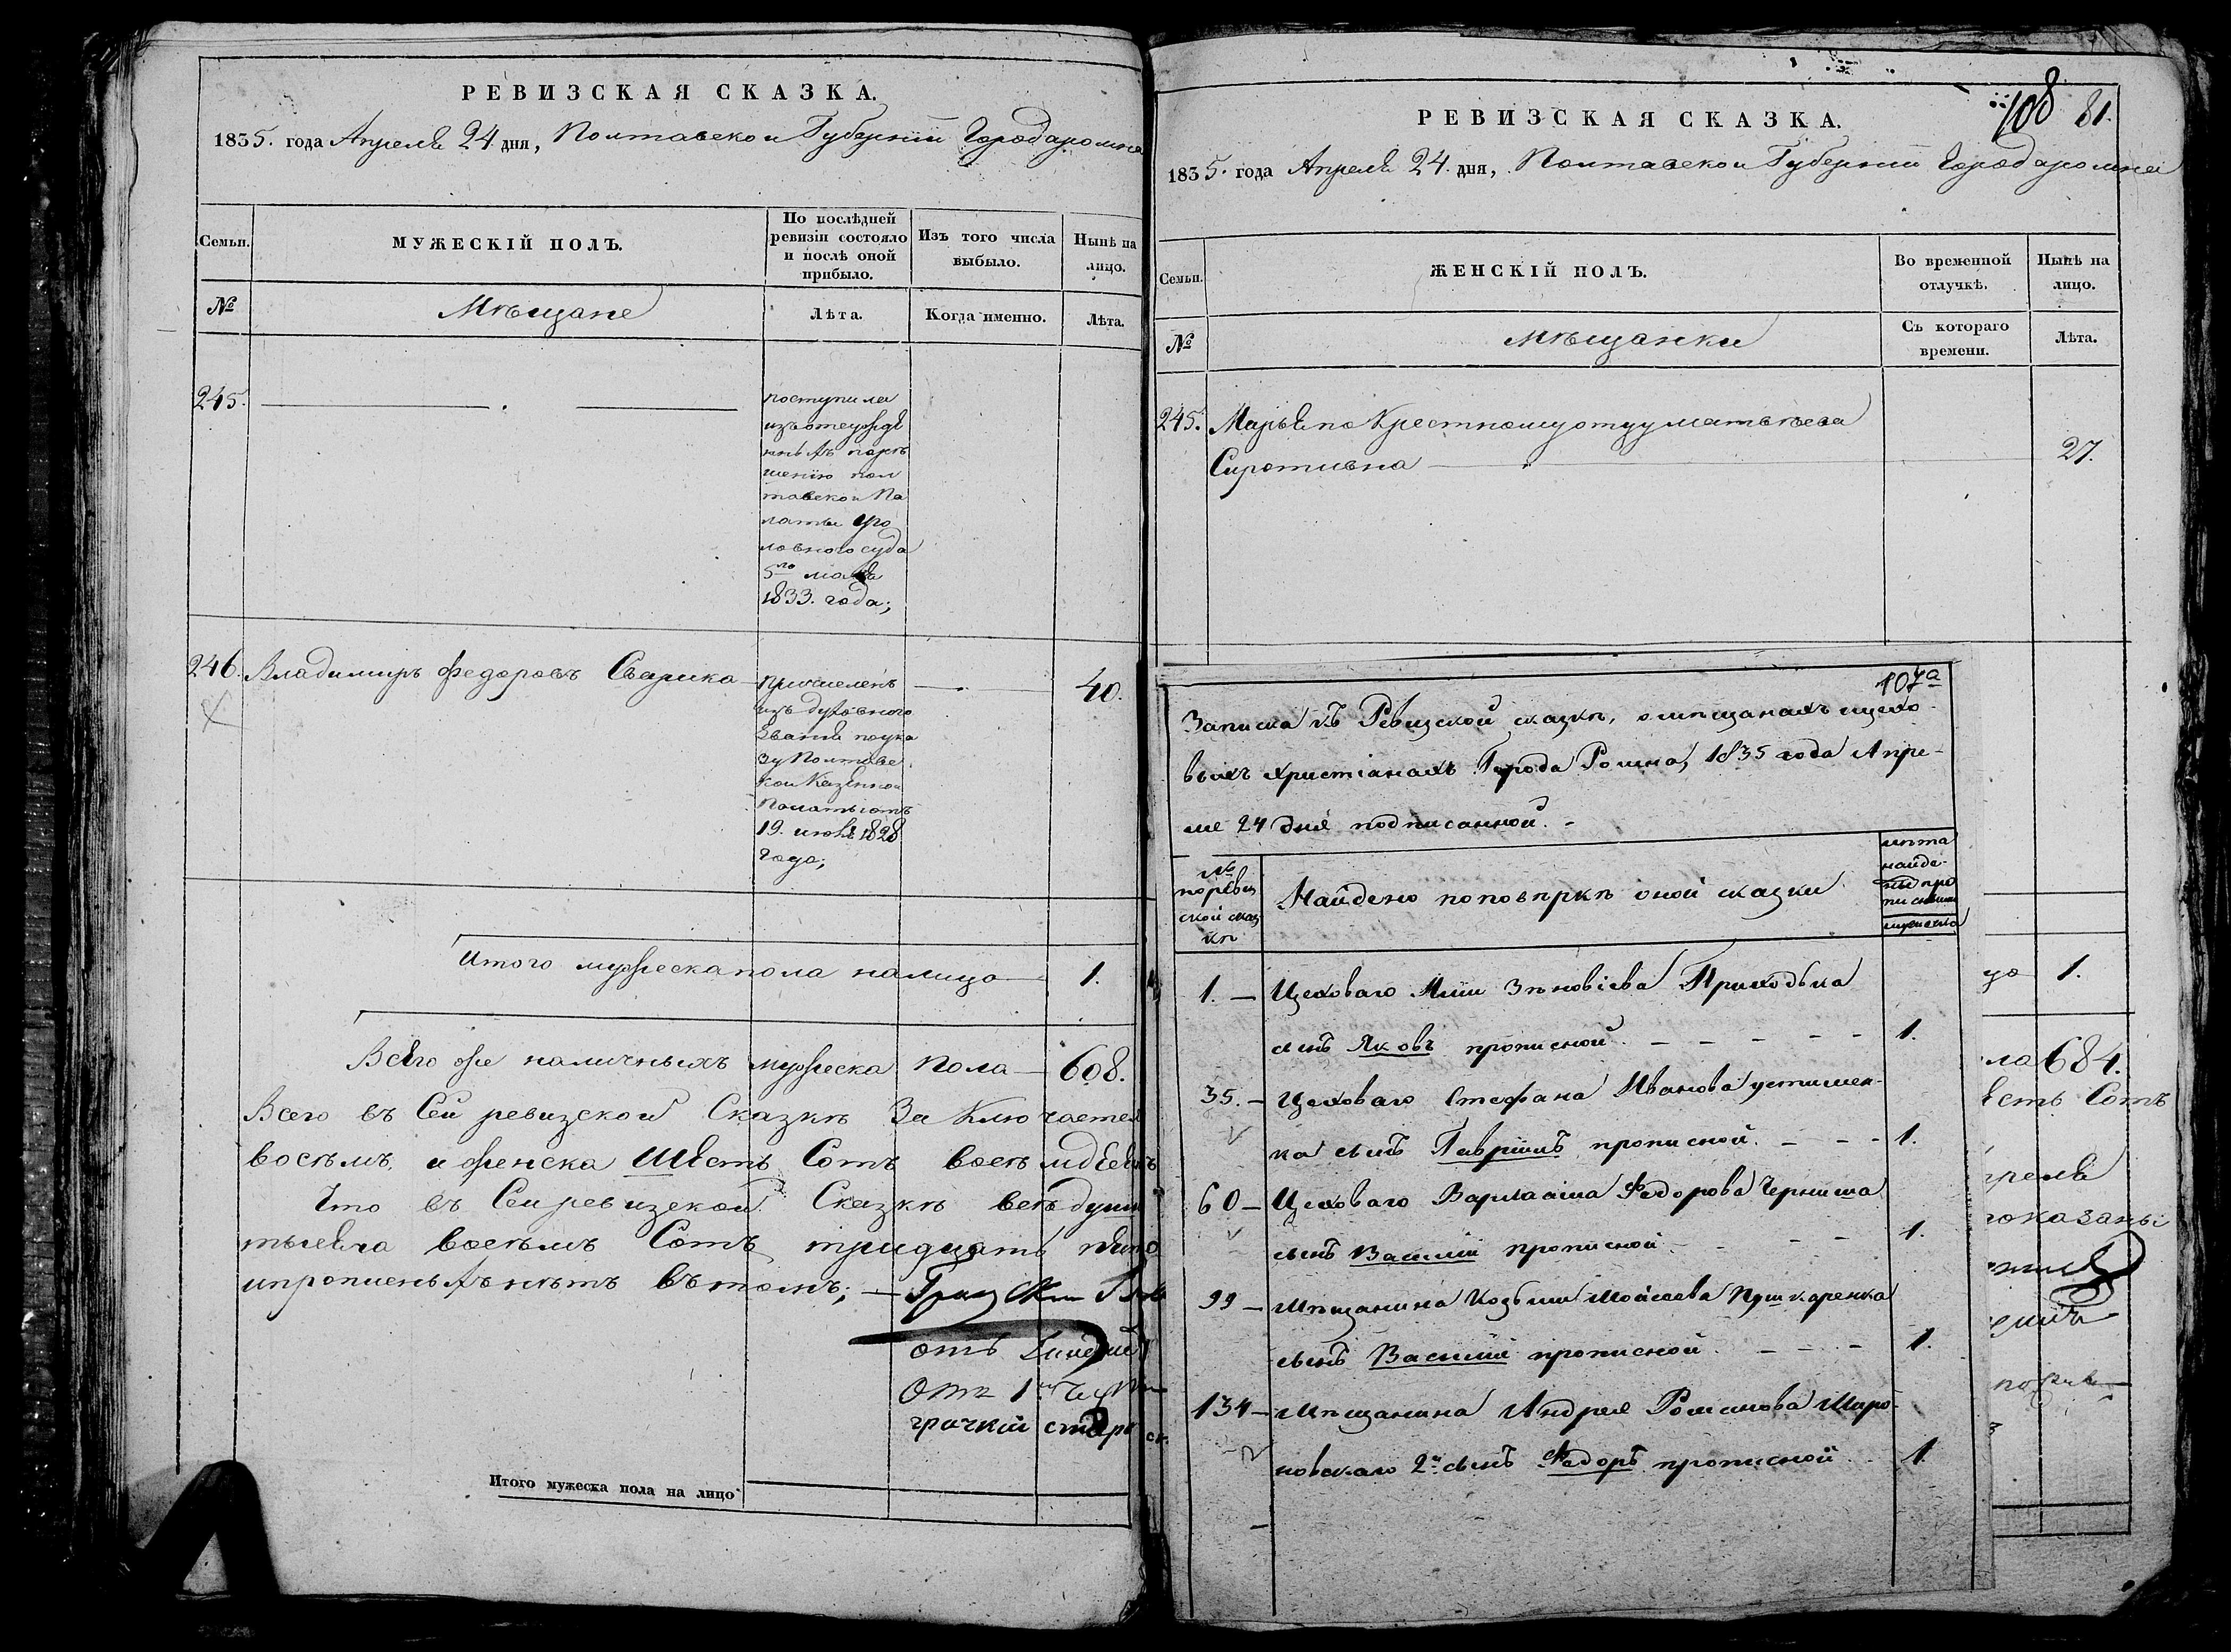 РЕВИЗСКАЯ СКАЗКА.
1835. года Апреля 24 дня, Полтавской Губернии Города Ромна
Семьи.
МУЖЕСКІЙ ПОЛЪ.
По послѣдней
ревизіи состояло
и послѣ оной
прибыло.
Изъ того числа
выбыло.
Нынѣ на
лицо.
№
Мѣщане
Лѣта.
Когда именно.
Лѣта.
245.
поступила
мѣнію пол
тавской Па
латы уго
ловного суда
5го мая
1833. года;
246. Владимиръ Федоровъ Сварика
40.
причисленъ
изъ духовного
званія поука
зу Полтавс
кой Казенной
Палаты отъ
19. июля 1828
года;
Итого мужеска пола налицо 1.
Всего же наличныхъ мужеска пола 608.
Всего въ Сей ревизской Сказкѣ Заключается
восѣмъ и женска Шесть Сотъ
Что въ Сей ревизской Сказкѣ всѣ души
тысяча восѣмъ Сотъ тридцать
ипрописныхъ нѣтъ въ томъ;
Итого мужеска пола на лицо
108 81.
РЕВИЗСКАЯ СКАЗКА.
1835. года Апреля 24. дня, Полтавской Губернии Города Ромна
Семьи.
ЖЕНСКІЙ ПОЛЪ.
Во временной
отлучкѣ.
Нынѣ на
лицо.
№
Мѣщанки
Съ котораго
времени.
Лѣта.
245. Марья по Крестному отцу Матвѣева
Сиротивна 27.
107а
Записка къ Ревизской сказкѣ, о мѣщанахъ ицехо-
выхъ христіанахъ Города Ромна, 1835 года Апре-
ля 24 дня подписанной. -
№
поревиз
ской сказ
кѣ
Найдено поповѣркѣ оной сказки
лѣта
найде-
1. — Цеховаго Иліи Зѣновіева Приходька
сынъ Яковъ прописной. - - - - - 1.
35. — Цеховаго Стефана Иванова устимен-
ка сынъ Гавріилъ прописной. - - - 1.
60 — Цеховаго Варлаама Федорова Черныша
сынъ Василій прописной - - - 1.
99 — Мѣщанина Козьмы Моисеева Пушкаренка
сынъ Василій прописной. - - - 1.
134 — Мѣщанина Андрея Романова Миро-
новскаго 2й сынъ Федоръ прописной 1.
1.
ла 684.
есть Сотъ
преля
показаны